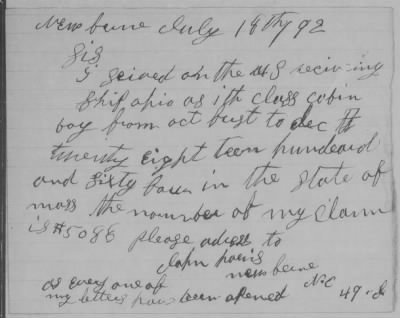 New berne July 18th 92
Sis
I seived on the US reciving
Ship ohio as 1th class cobin
boy from oct burst to dec th
twenty Eight teen hundeard
and Sixty four in the State of
mass the noumber of my Claim
is #5088 please adress to
John
new berne
N.C
as every one of
my letters have been opened
49.